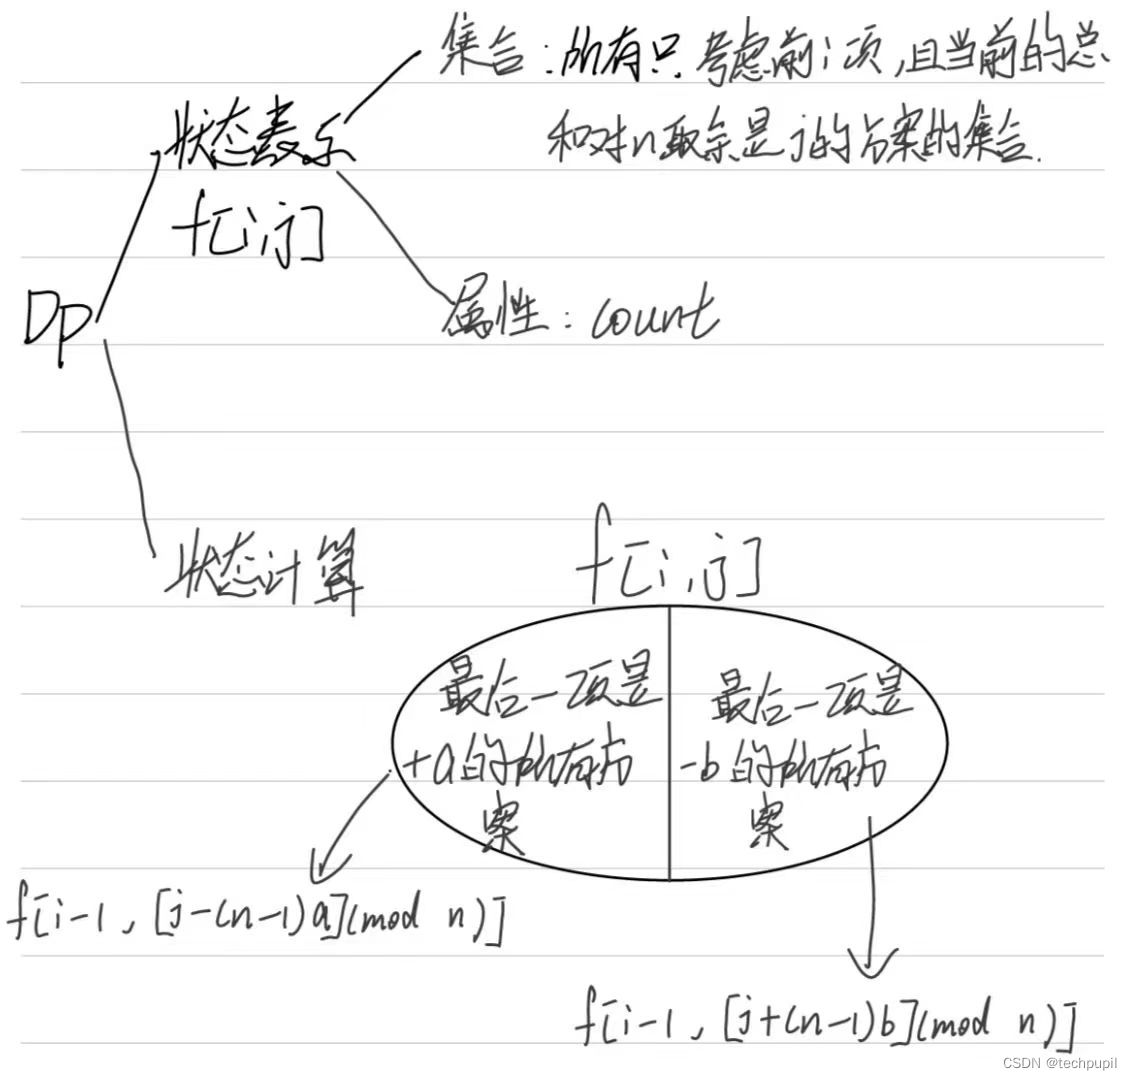 集合：所有只考虑前i项，且当前的总
和对n取余是j的方案的集合.
状态表示
f[i,j]
属性：count
DP
状态计算
f[i,j]
最后一项是
+a的所有方
案
最后一项是
-b的所有方
案
f[i-1, [j-(n-1)a](mod n)]
f[i-1, [j+(n-1)b](mod n)]
CSDN @techpupil